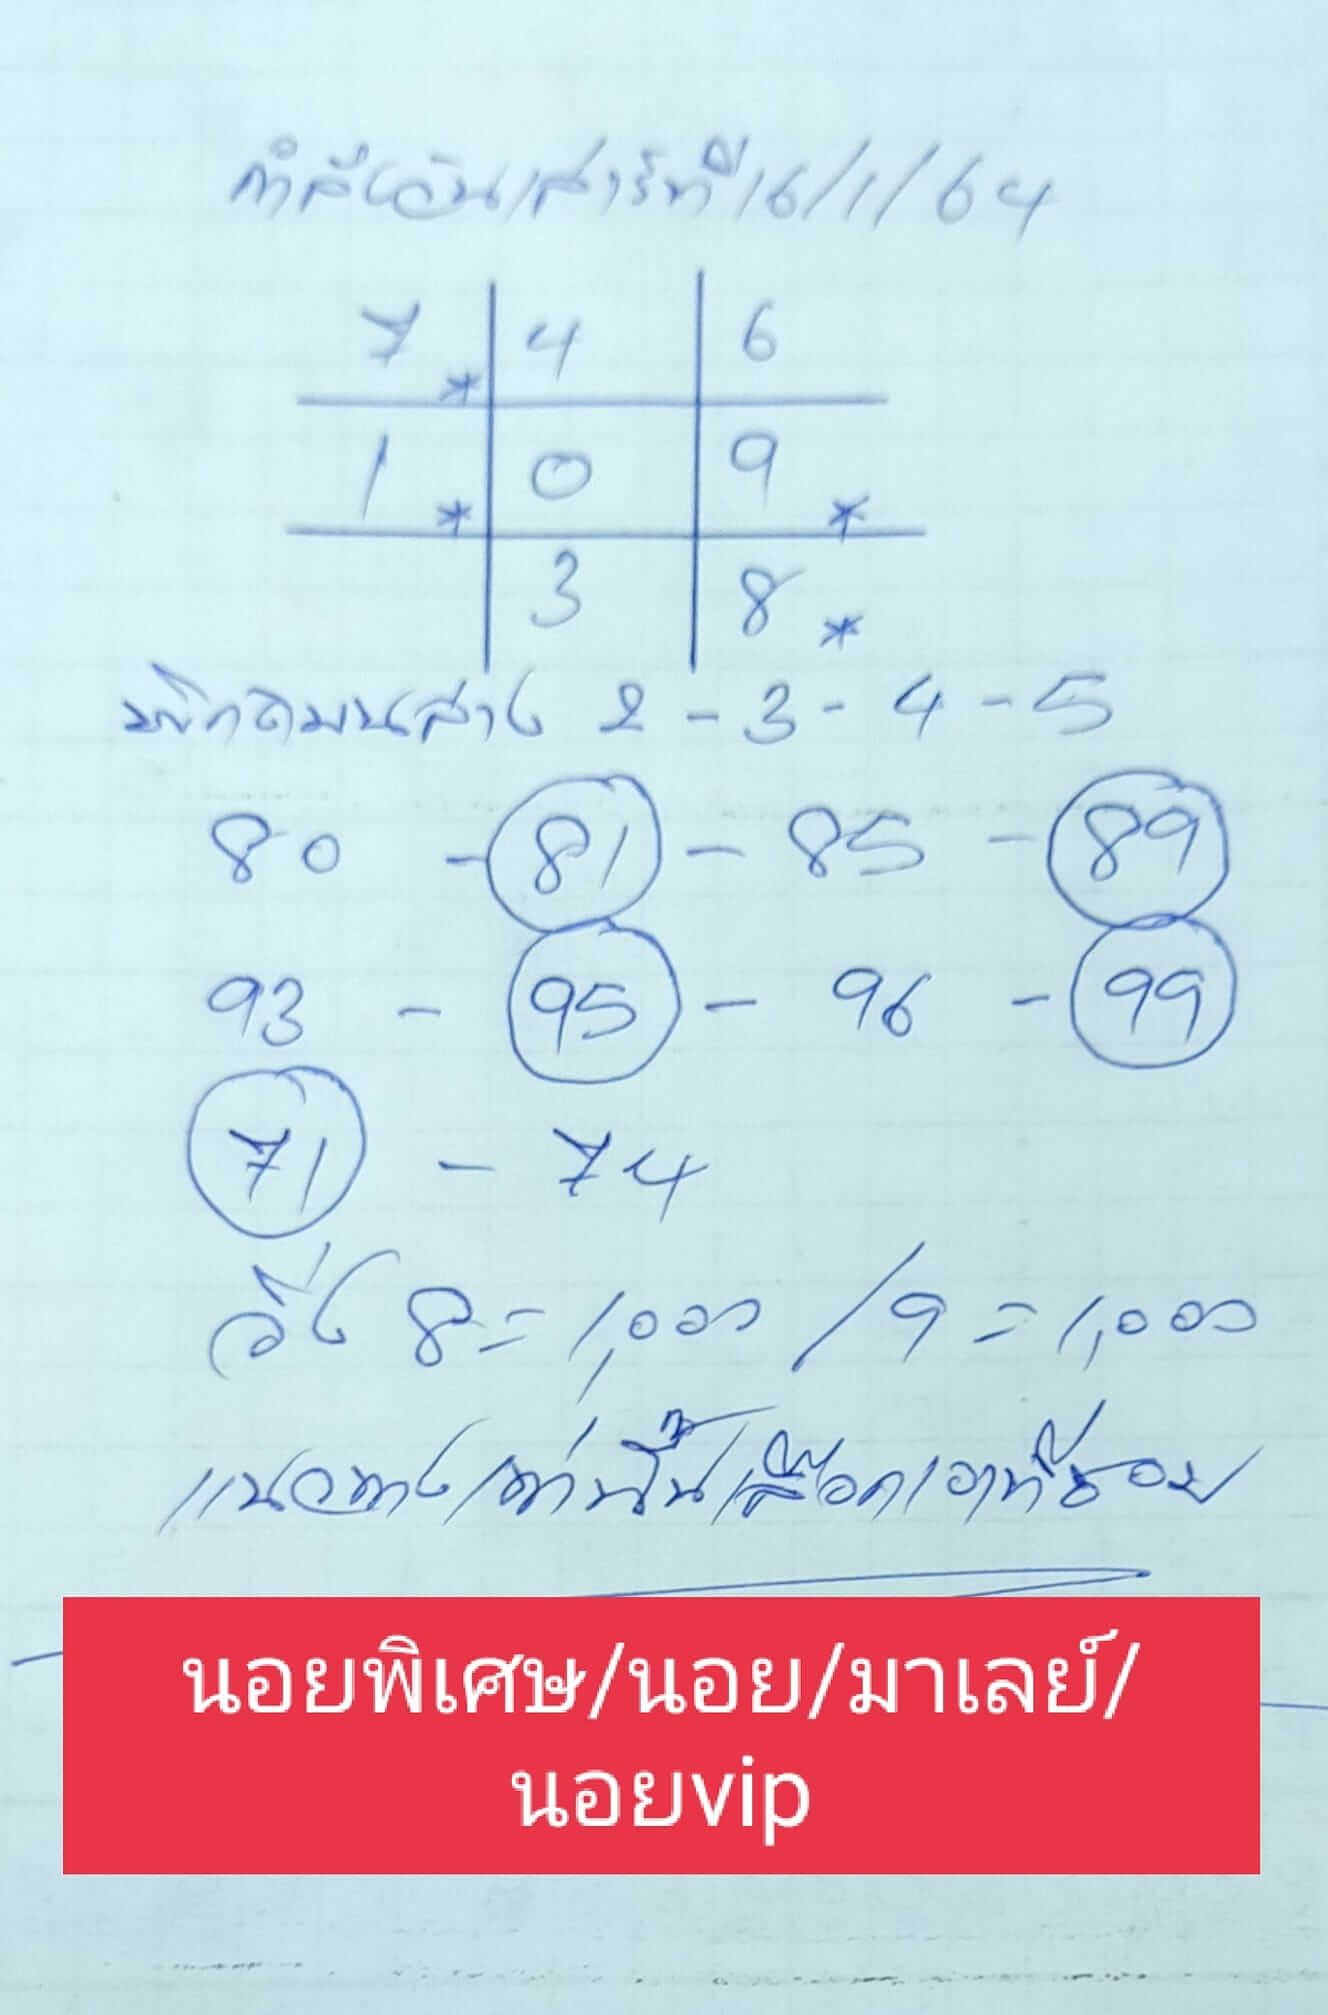 กำลังวันเสาร์ที่ 16/1/64
7* 4 6
1* 0 9*
3 8*
พิกัดบนล่าง 2 - 3 - 4 - 5
80 - 81 - 85 - 89
93 - 95 - 96 - 99
71 - 74
วิ่ง 8 = 1,000 / 9 = 1,000
แนวทางเท่านั้นเลือกเอาที่ชอบ
นอยพิเศษ/นอย/มาเลย์/
นอยvip